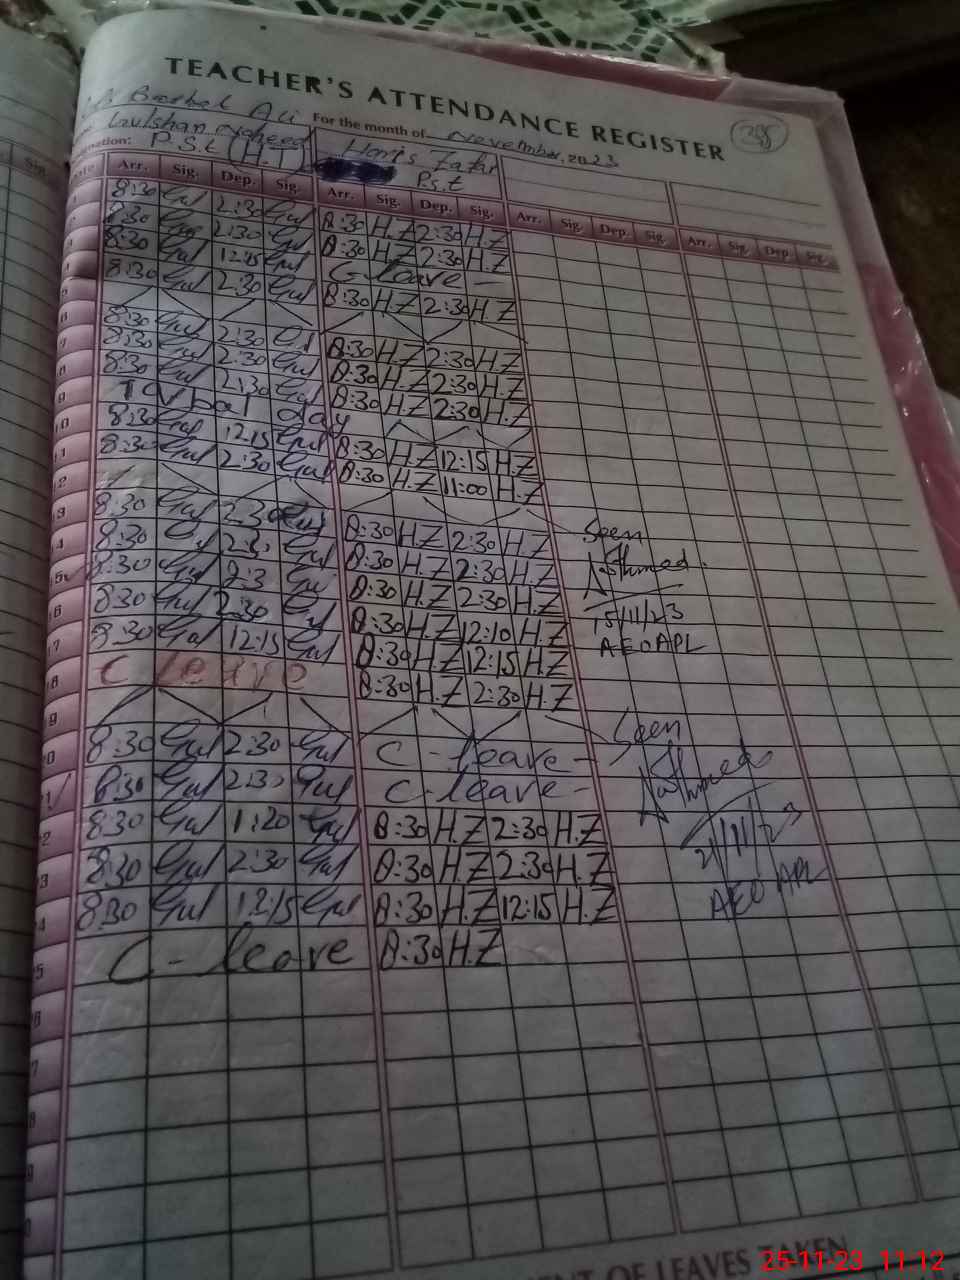 TEACHER'S ATTENDANCE REGISTER
395
Ali For the month of November, 2023
Gulshan Naheed Haris Zafar
P.S.t (H.T) P.s.t
Arr. Sig. Dep. Sig. Arr. Sig. Dep. Sig. Arr. Sig. Dep. Sig. Arr. Sig. Dep. Sig.
8:30 Gul 2:30 Gul 8:30 H.Z 2:30 H.Z
8:30 Gul 2:30 Gul 8:30 H.Z 2:30 H.Z
8:30 Gul 12:15 Gul C-leave -
8:30 Gul 2:30 Gul 8:30 H.Z 2:30 H.Z
8:30 Gul 2:30 Gul 8:30 H.Z 2:30 H.Z
8:30 Gul 2:30 Gul 8:30 H.Z 2:30 H.Z
8:30 Gul 2:30 Gul 8:30 H.Z 2:30 H.Z
day
8:30 Gul 12:15 Gul 8:30 H.Z 12:15 H.Z
8:30 Gul 2:30 Gul 8:30 H.Z 11:00 H.Z
8:30 Gul 2:30 Gul 8:30 H.Z 2:30 H.Z
Seen
8:30 Gul 2:30 Gul 8:30 H.Z 2:30 H.Z
8:30 Gul 2:3 Gul 8:30 H.Z 2:30 H.Z
15/11/23
8:30 Gul 2:30 Gul 8:30 H.Z 12:10 H.Z
AEO APL
8:30 Gul 12:15 Gul 8:30 H.Z 12:15 H.Z
C leave 8:30 H.Z 2:30 H.Z
Seen
8:30 Gul 2:30 Gul C-leave -
8:30 Gul 2:30 Gul C-leave -
8:30 Gul 1:20 Gul 8:30 H.Z 2:30 H.Z
21/11/23
8:30 Gul 2:30 Gul 8:30 H.Z 2:30 H.Z
AEO APL
8:30 Gul 12:15 Gul 8:30 H.Z 12:15 H.Z
C-leave 8:30 H.Z
OF LEAVES TAKEN
25-11-23 11:12